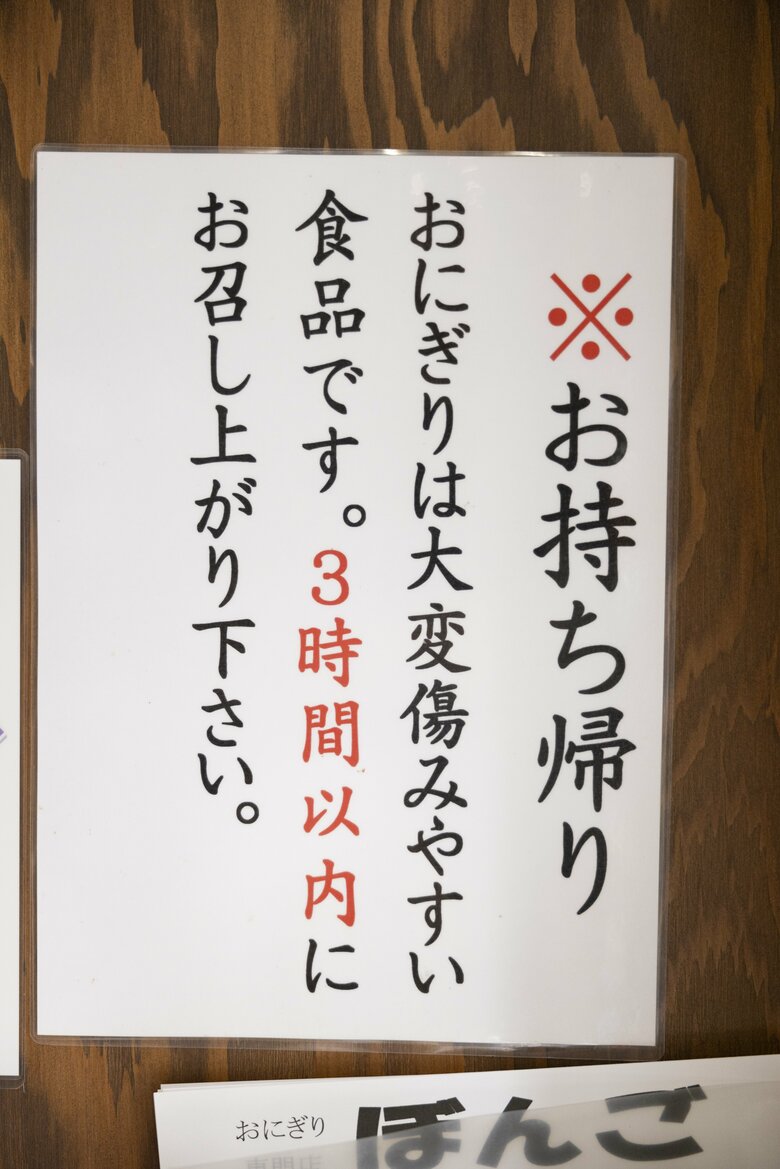 ※お持ち帰り
おにぎりは大変傷みやすい
食品です。3時間以内に
お召し上がり下さい。
おにぎり
専門店
ぼんご